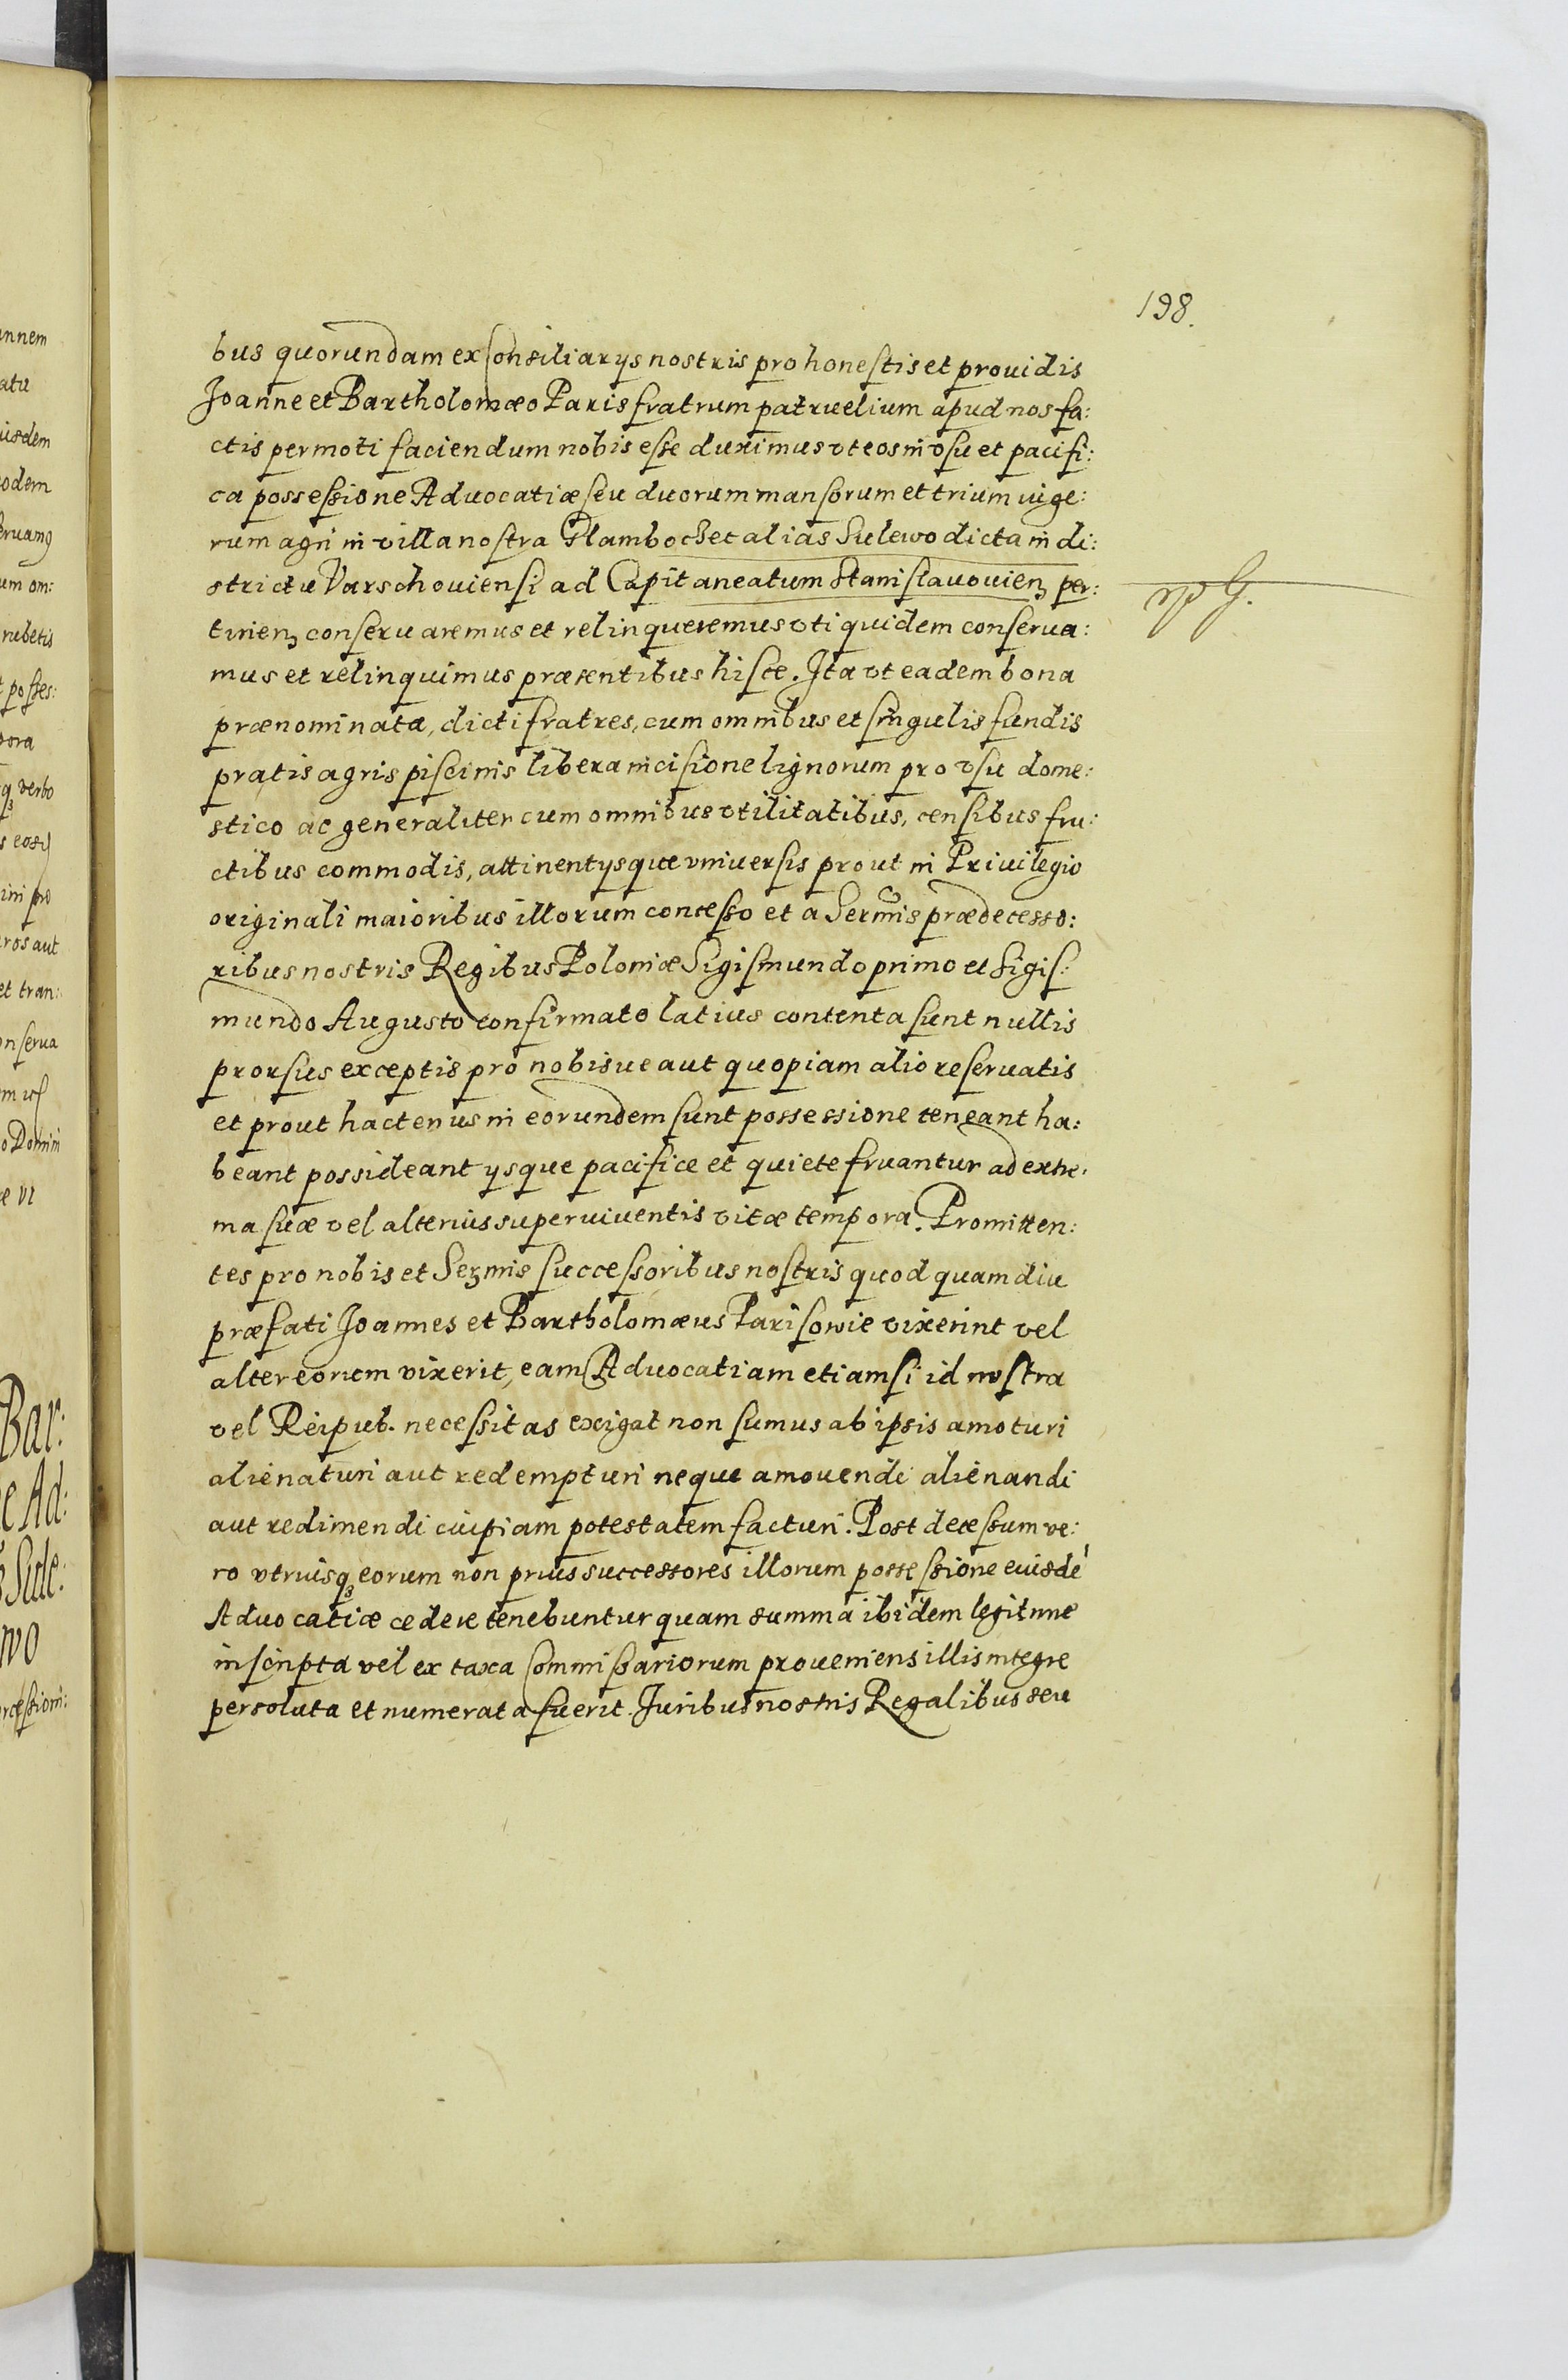 198.
bus quorundam ex Consiliarys nostris pro honestis et prouidis
Joanne et Bartholomæo Paris fratrum patruelium apud nos fa:
ctis permoti faciendum nobis esse duximus vt eos in vsu et pacifi:
ca possessione Aduocatiæ seu duorum mansorum et trium iuge:
rum agri in villa nostra Glambochec alias Sulewo dicta in di:
strictu Varschouiensi ad Capitaneatum Stanislauouienʒ per:
tinenʒ conseruaremus et relinqueremus vti quidem conserua:
mus et relinquimus præsentibus hisce. Ita vt eadem bona
prænominata, dicti fratres, cum omnibus et singulis fundis
pratis agris piscinis libera incisione lignorum pro vsu dome:
stico ac generaliter cum omnibus vtilitatibus, censibus fru:
ctibus commodis, attinentysque vniuersis prout in Priuilegio
originali maioribus illorum concesso et a Sermis prædecesso:
ribus nostris Regibus Poloniæ Sigismundo primo et Sigis:
mundo Augusto confirmato latius contenta sunt nullis
prorsus exceptis pro nobisue aut quopiam alio reseruatis
et prout hactenus in eorundem sunt possessione teneant ha:
beant possideant ysque pacifice et quiete fruantur ad extre:
ma suæ vel alterius superuiuentis vitæ tempora. Promitten:
tes pro nobis et Serʒmis successoribus nostris quod quam diu
præfati Joannes et Bartholomæus Parisowie vixerint vel
alter eorum vixerit, eam Aduocatiam etiamsi id nostra
vel Reipub. necessitas exigat non sumus ab ipsis amoturi
alienaturi aut redempturi neque amouendi alienandi
aut redimendi cuipiam potestatem facturi. Post decessum ve:
ro vtriusqʒ eorum non prius successores illorum possessione eiusdē
Aduocatiæ cedere tenebuntur quam summa ibidem legitime
inscripta vel ex taxa Commissariorum proueniens illis integre
persoluta et numerata fuerit. Juribus nostris Regalibus seu